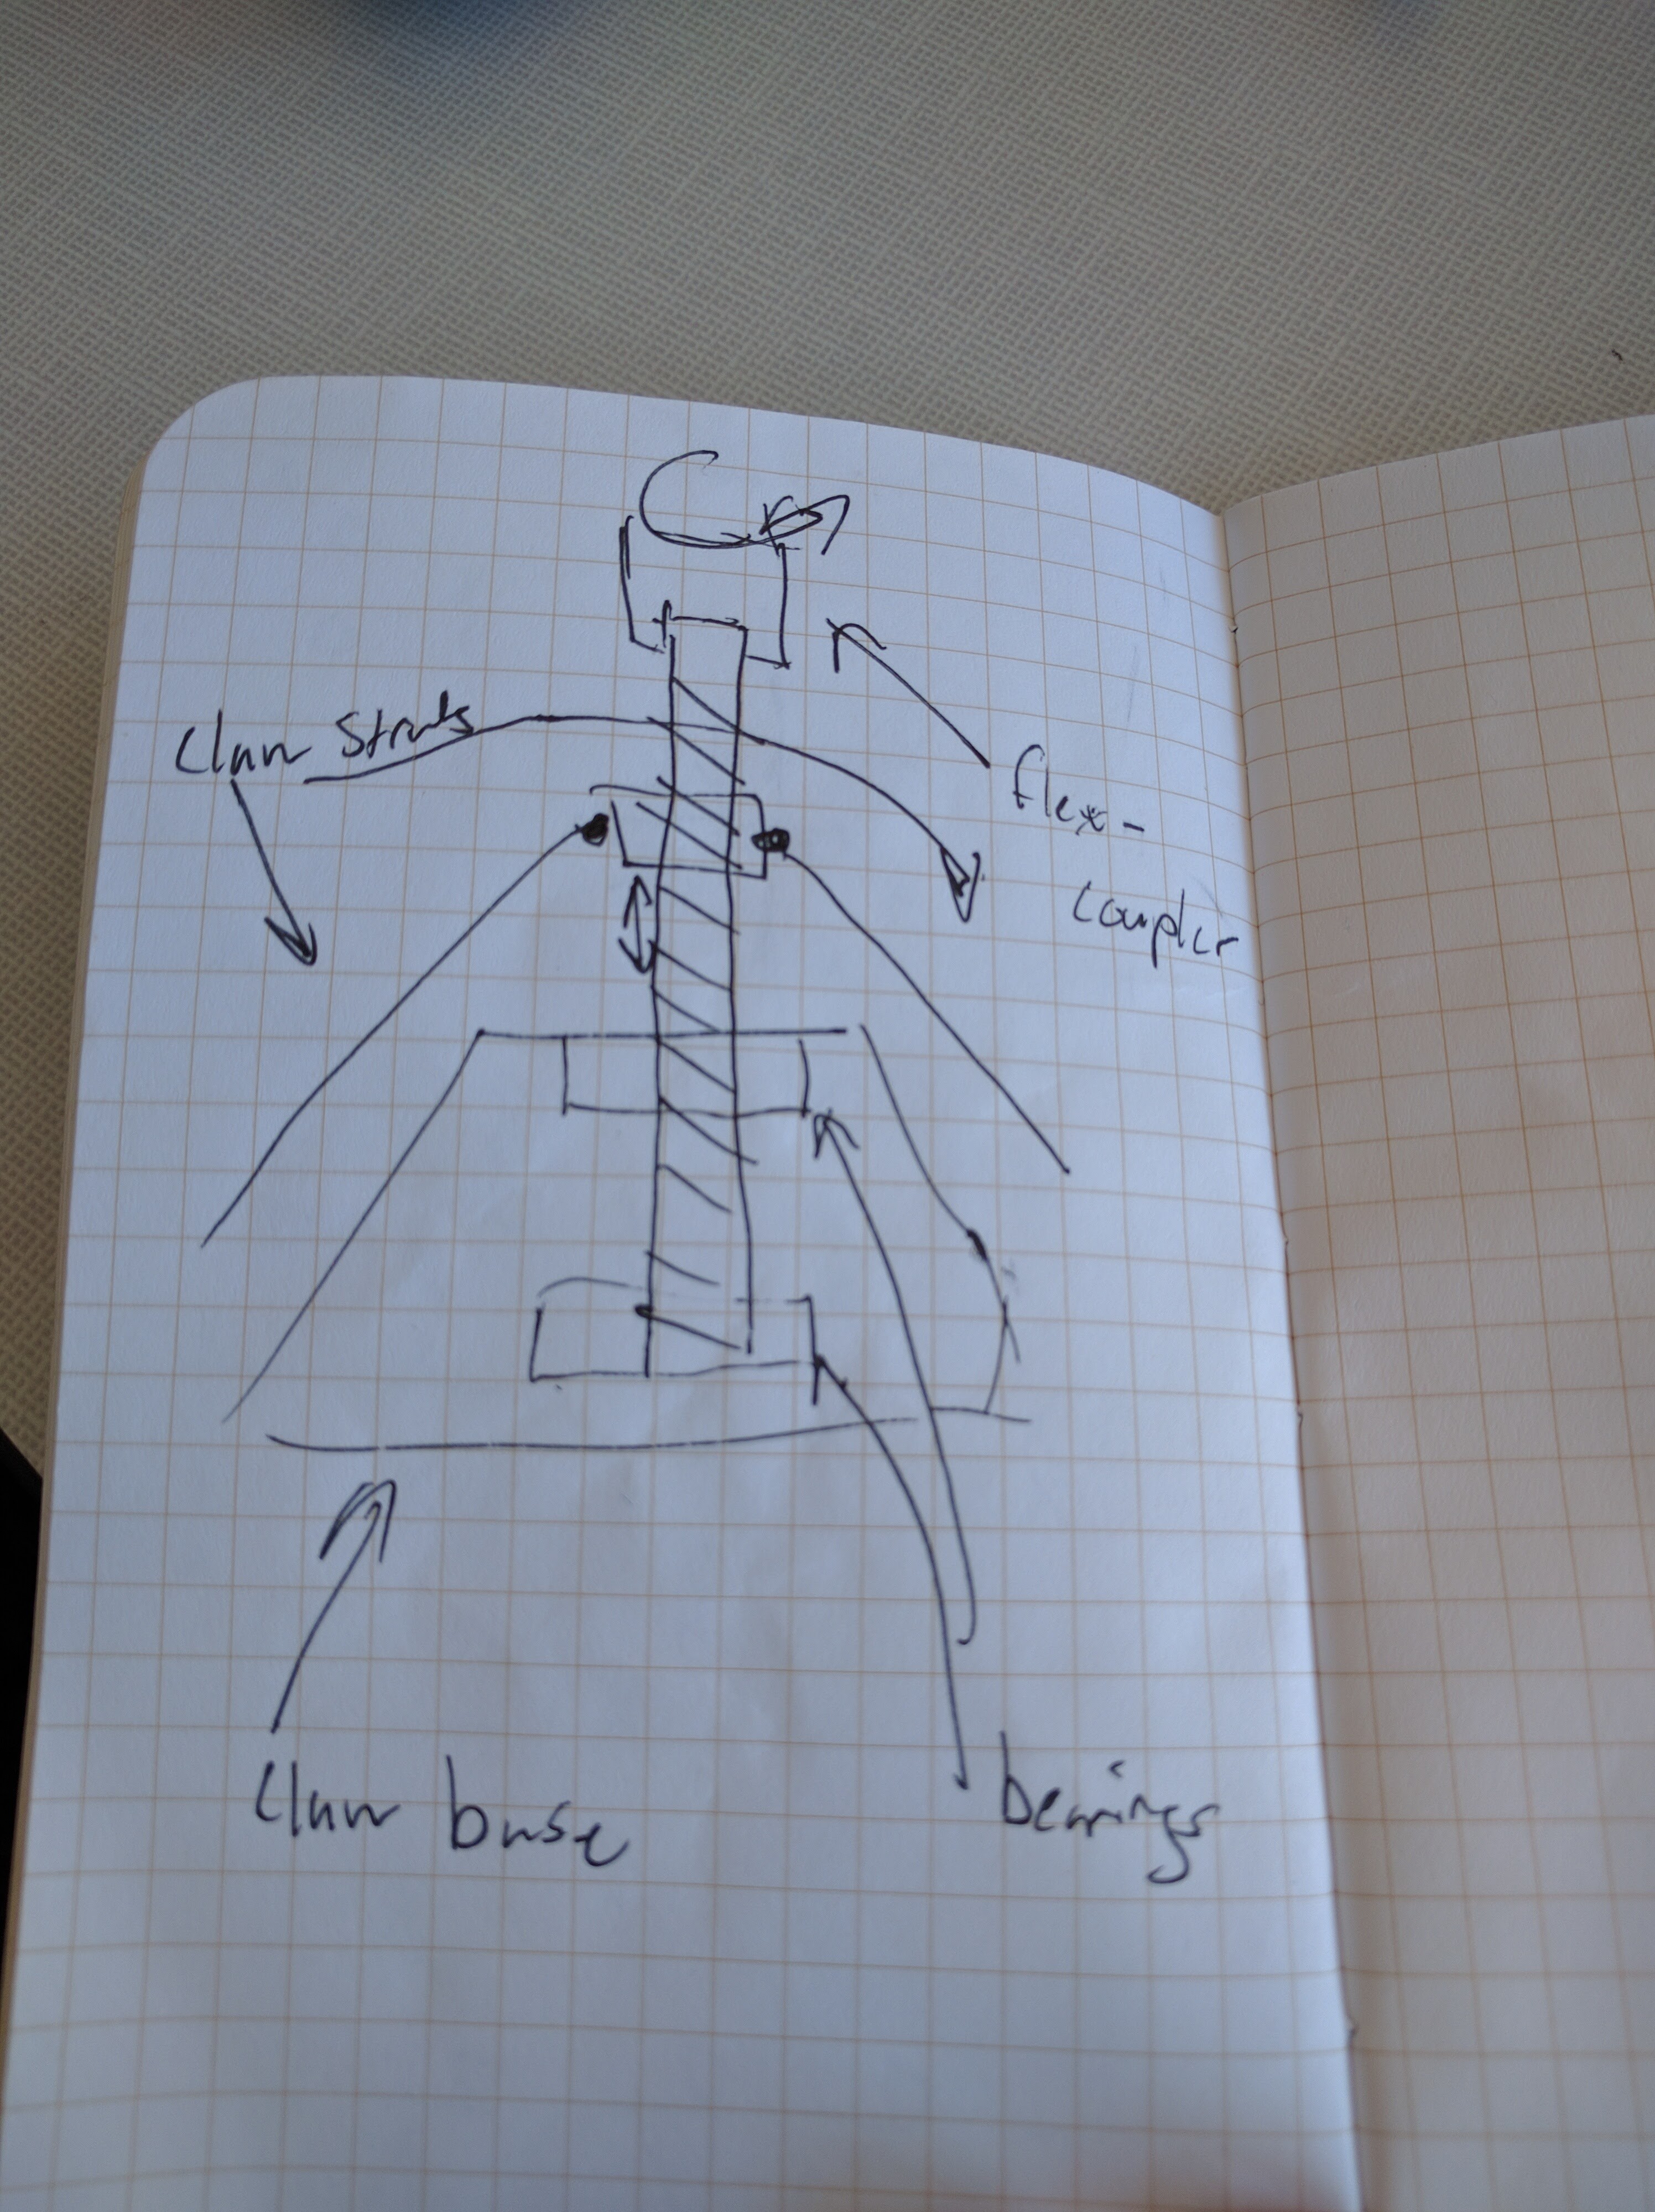 Claw Struts
flex-
coupler
Claw base
bearings